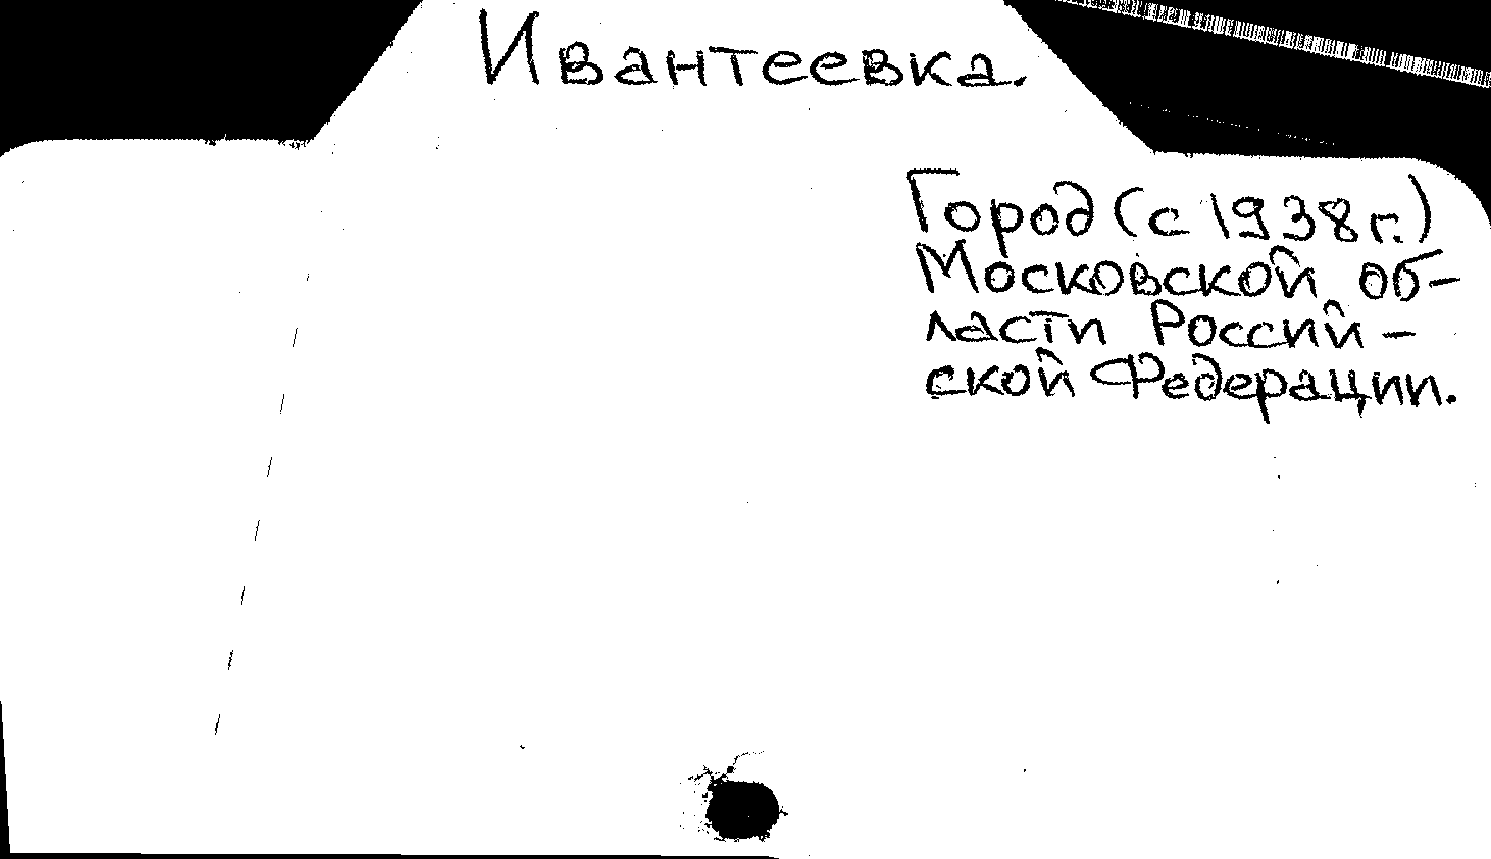 Ивантеевка.
Город (с 1938 г.)
Московской об-
ласти Россий-
ской Федерации.